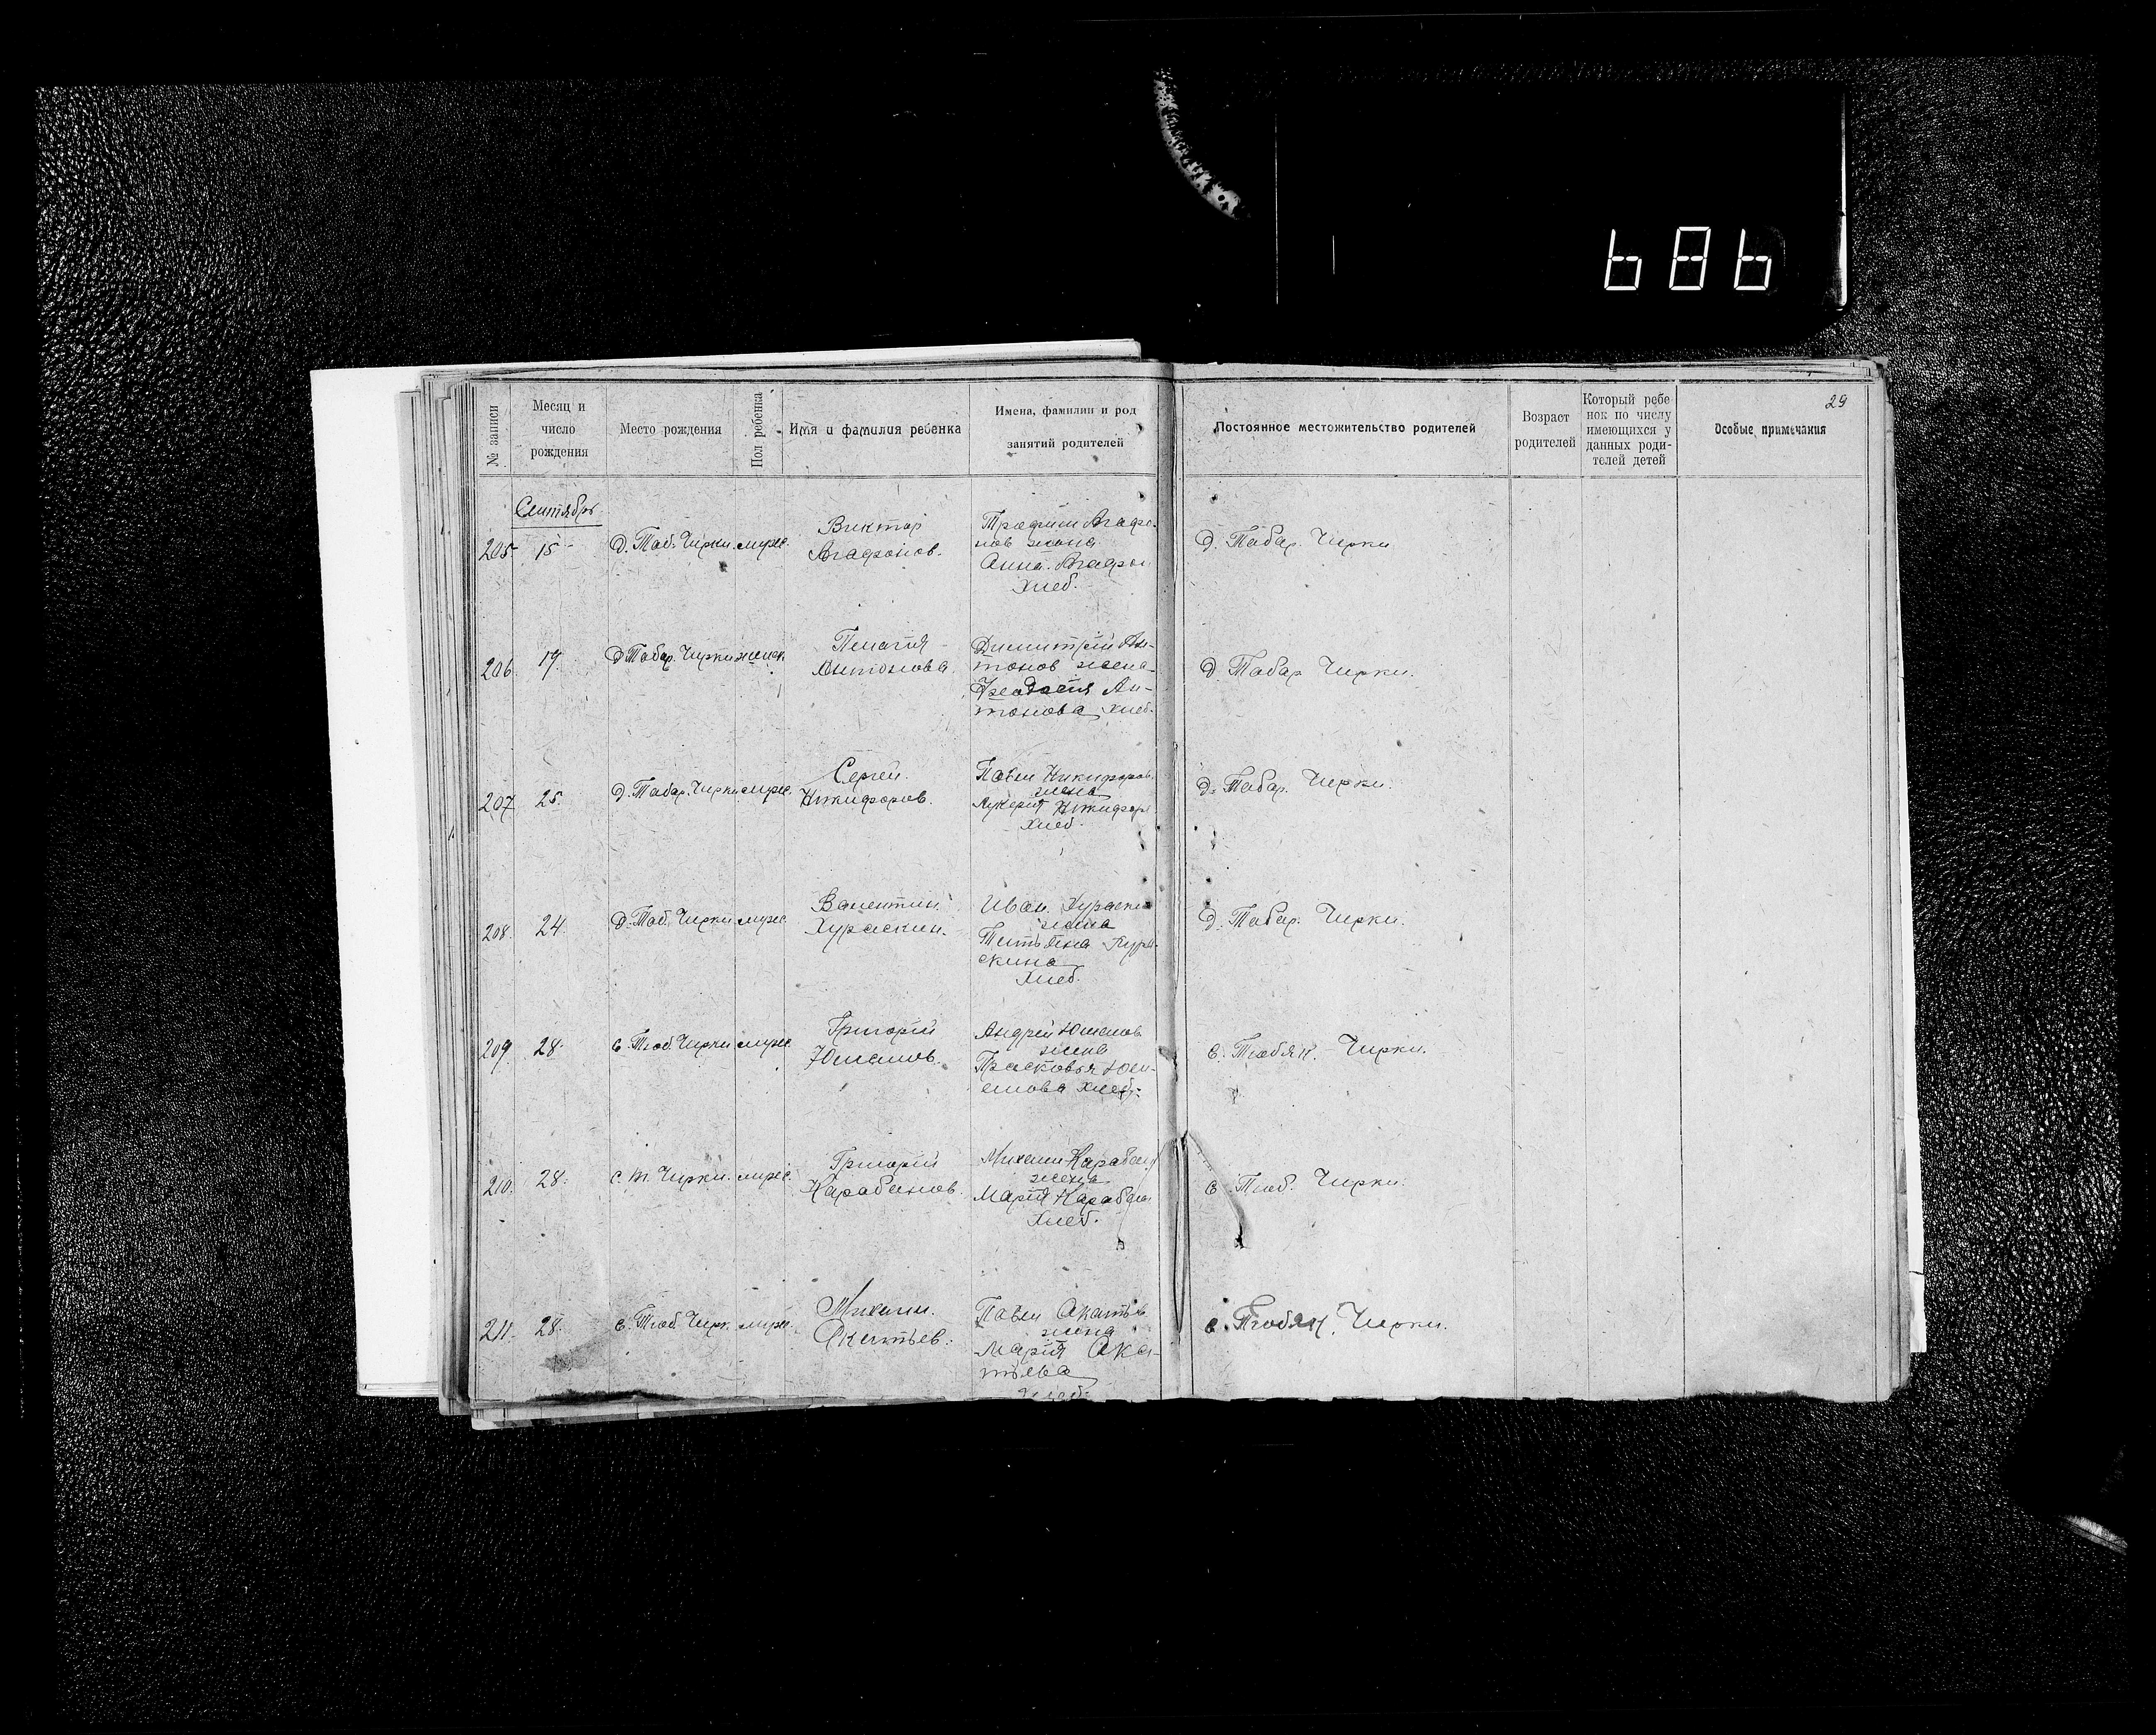 686
29
№ записи
Месяц и
число
рождения
Место рождения
Пол ребенка
Имя и фамилия ребенка
Имена, фамилии и род
занятий родителей
Постоянное местожительство родителей
Возраст
родителей
Который ребе
нок по числу
имеющихся у
данных роди-
телей детей
Особые примечания
Сентябрь
205 15 Д. Таб. Чирки муж.
Виктор
Агафонов.
Трофим Агафо-
нов жена
Анна Агафон
хлеб.
д. Табар. Чирки
206. 19. Д Табар. Чирки женск
Пелагия
Антонова
Димитрий Ан-
тонов жена
Феодосия Ан-
тонова хлеб.
д. Табар Чирки.
207 25. д. Табар. Чирки муж.
Сергей
Никифоров.
Павел Никифоров.
жена
Лукерия Никифор
хлеб.
д. Табар. Чирки.
208. 24. Д. Таб. Чирки муж.
Валентин
Кураскин.
Иван
жена
Татьяна Кура-
скина
хлеб.
д. Табар. Чирки.
209 28. с. Тюб Чирки муж.
Григорий
Юманов.
Андрей Юманов
жена
Прасковья Юм-
анова хлеб.
с. Тюбяк. Чирки.
210. 28. с. т. Чирки. муж.
Григорий
Карабанов.
Михаил Карабан
жена
Мария Карабан
хлеб.
с Тюб. Чирки.
211. 28. с. Тюб Чирк. муж.
Михаил.
Акатьев.
Павел Акатьев
жена
Мария Ака-
тьева
хлеб.
с. Тюбяк. Чирки.